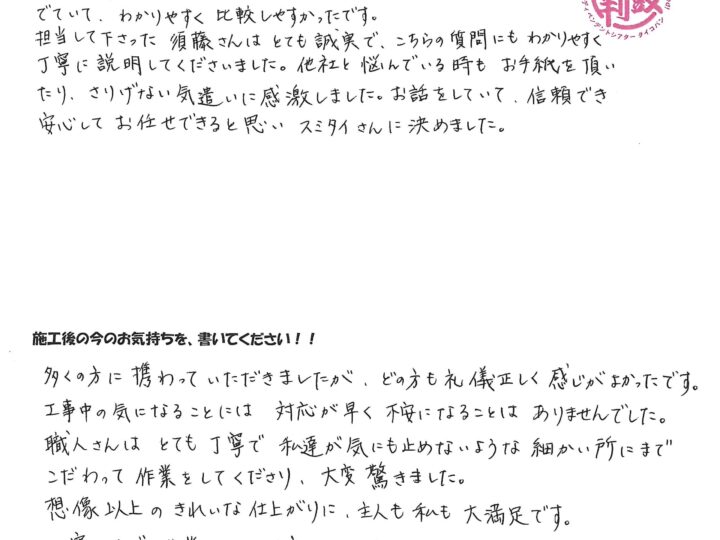 でていて、わかりやすく比較しやすかったです。
担当して下さった須藤さんはとても誠実で、こちらの質問にもわかりやすく
丁寧に説明してくださいました。他社と悩んでいる時もお手紙を頂い
たり、さりげない気遣いに感激しました。お話をしていて、信頼でき
安心してお任せできると思いスミタイさんに決めました。
施工後の今のお気持ちを、書いてください！！
多くの方に携わっていただきましたが、どの方も礼儀正しく感じがよかったです。
工事中の気になることには対応が早く不安になることはありませんでした。
職人さんはとても丁寧で私達が気にも止めないような細かい所にまで
こだわって作業をしてくださり、大変驚きました。
想像以上のきれいな仕上がりに、主人も私も大満足です。